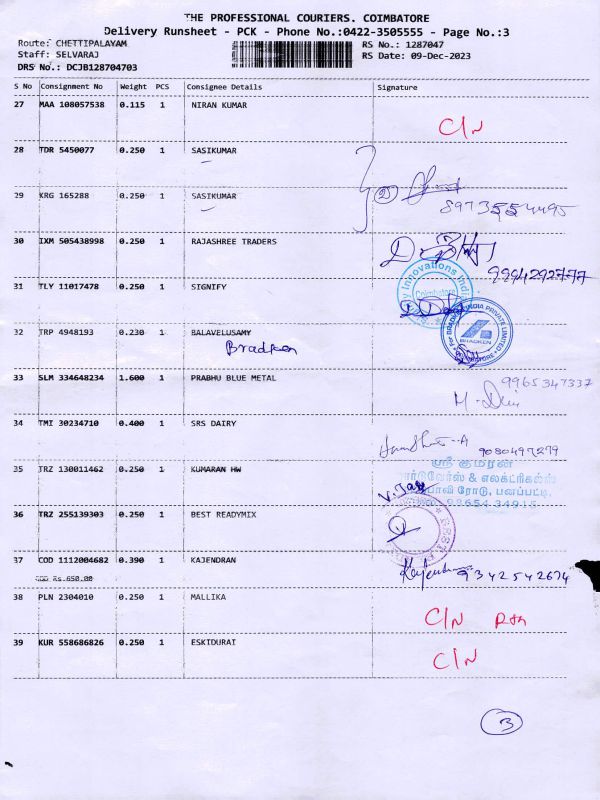 THE PROFESSIONAL COURIERS. COIMBATORE
Delivery Runsheet - PCK - Phone No.:0422-3505555 - Page No.:3
Route: CHETTIPALAYAM RS No.: 1287047
Staff: SELVARAJ RS Date: 09-Dec-2023
DRS No.: DCJB128704703
S No Consignment No Weight PCS Consignee Details Signature
27 MAA 108057538 0.115 1 NIRAN KUMAR
C/N
28 TDR 5450077 0.250 1 SASIKUMAR
29 KRG 165288 0.250 1 SASIKUMAR
2
8973554495
30 IXM 505438998 0.250 1 RAJASHREE TRADERS
9994292777
31 TLY 11017478 0.250 1 SIGNIFY
Innovations Indi
Coimbatore
32 TRP 4948193 0.230 1 BALAVELUSAMY
Bradken
INDIA PRIVATE LIMITED
BRADKEN
33 SLM 334648234 1.600 1 PRABHU BLUE METAL
9965347337
M. Devi
34 TMI 30234710 0.400 1 SRS DAIRY
9080497299
35 TRZ 130011462 0.250 1 KUMARAN HW
ஸ்ரீ குமரன்
ஹார்டுவேர்ஸ் & எலக்ட்ரிகல்ஸ்
ரோடு, பனப்பட்டி,
98654 34915
36 TRZ 255139303 0.250 1 BEST READYMIX
37 COD 1112004682 0.390 1 KAJENDRAN
COD Rs.650.00
9342542674
38 PLN 2304010 0.250 1 MALLIKA
C/N Rtn
39 KUR 558686826 0.250 1 ESKIDURAI
C/N
13